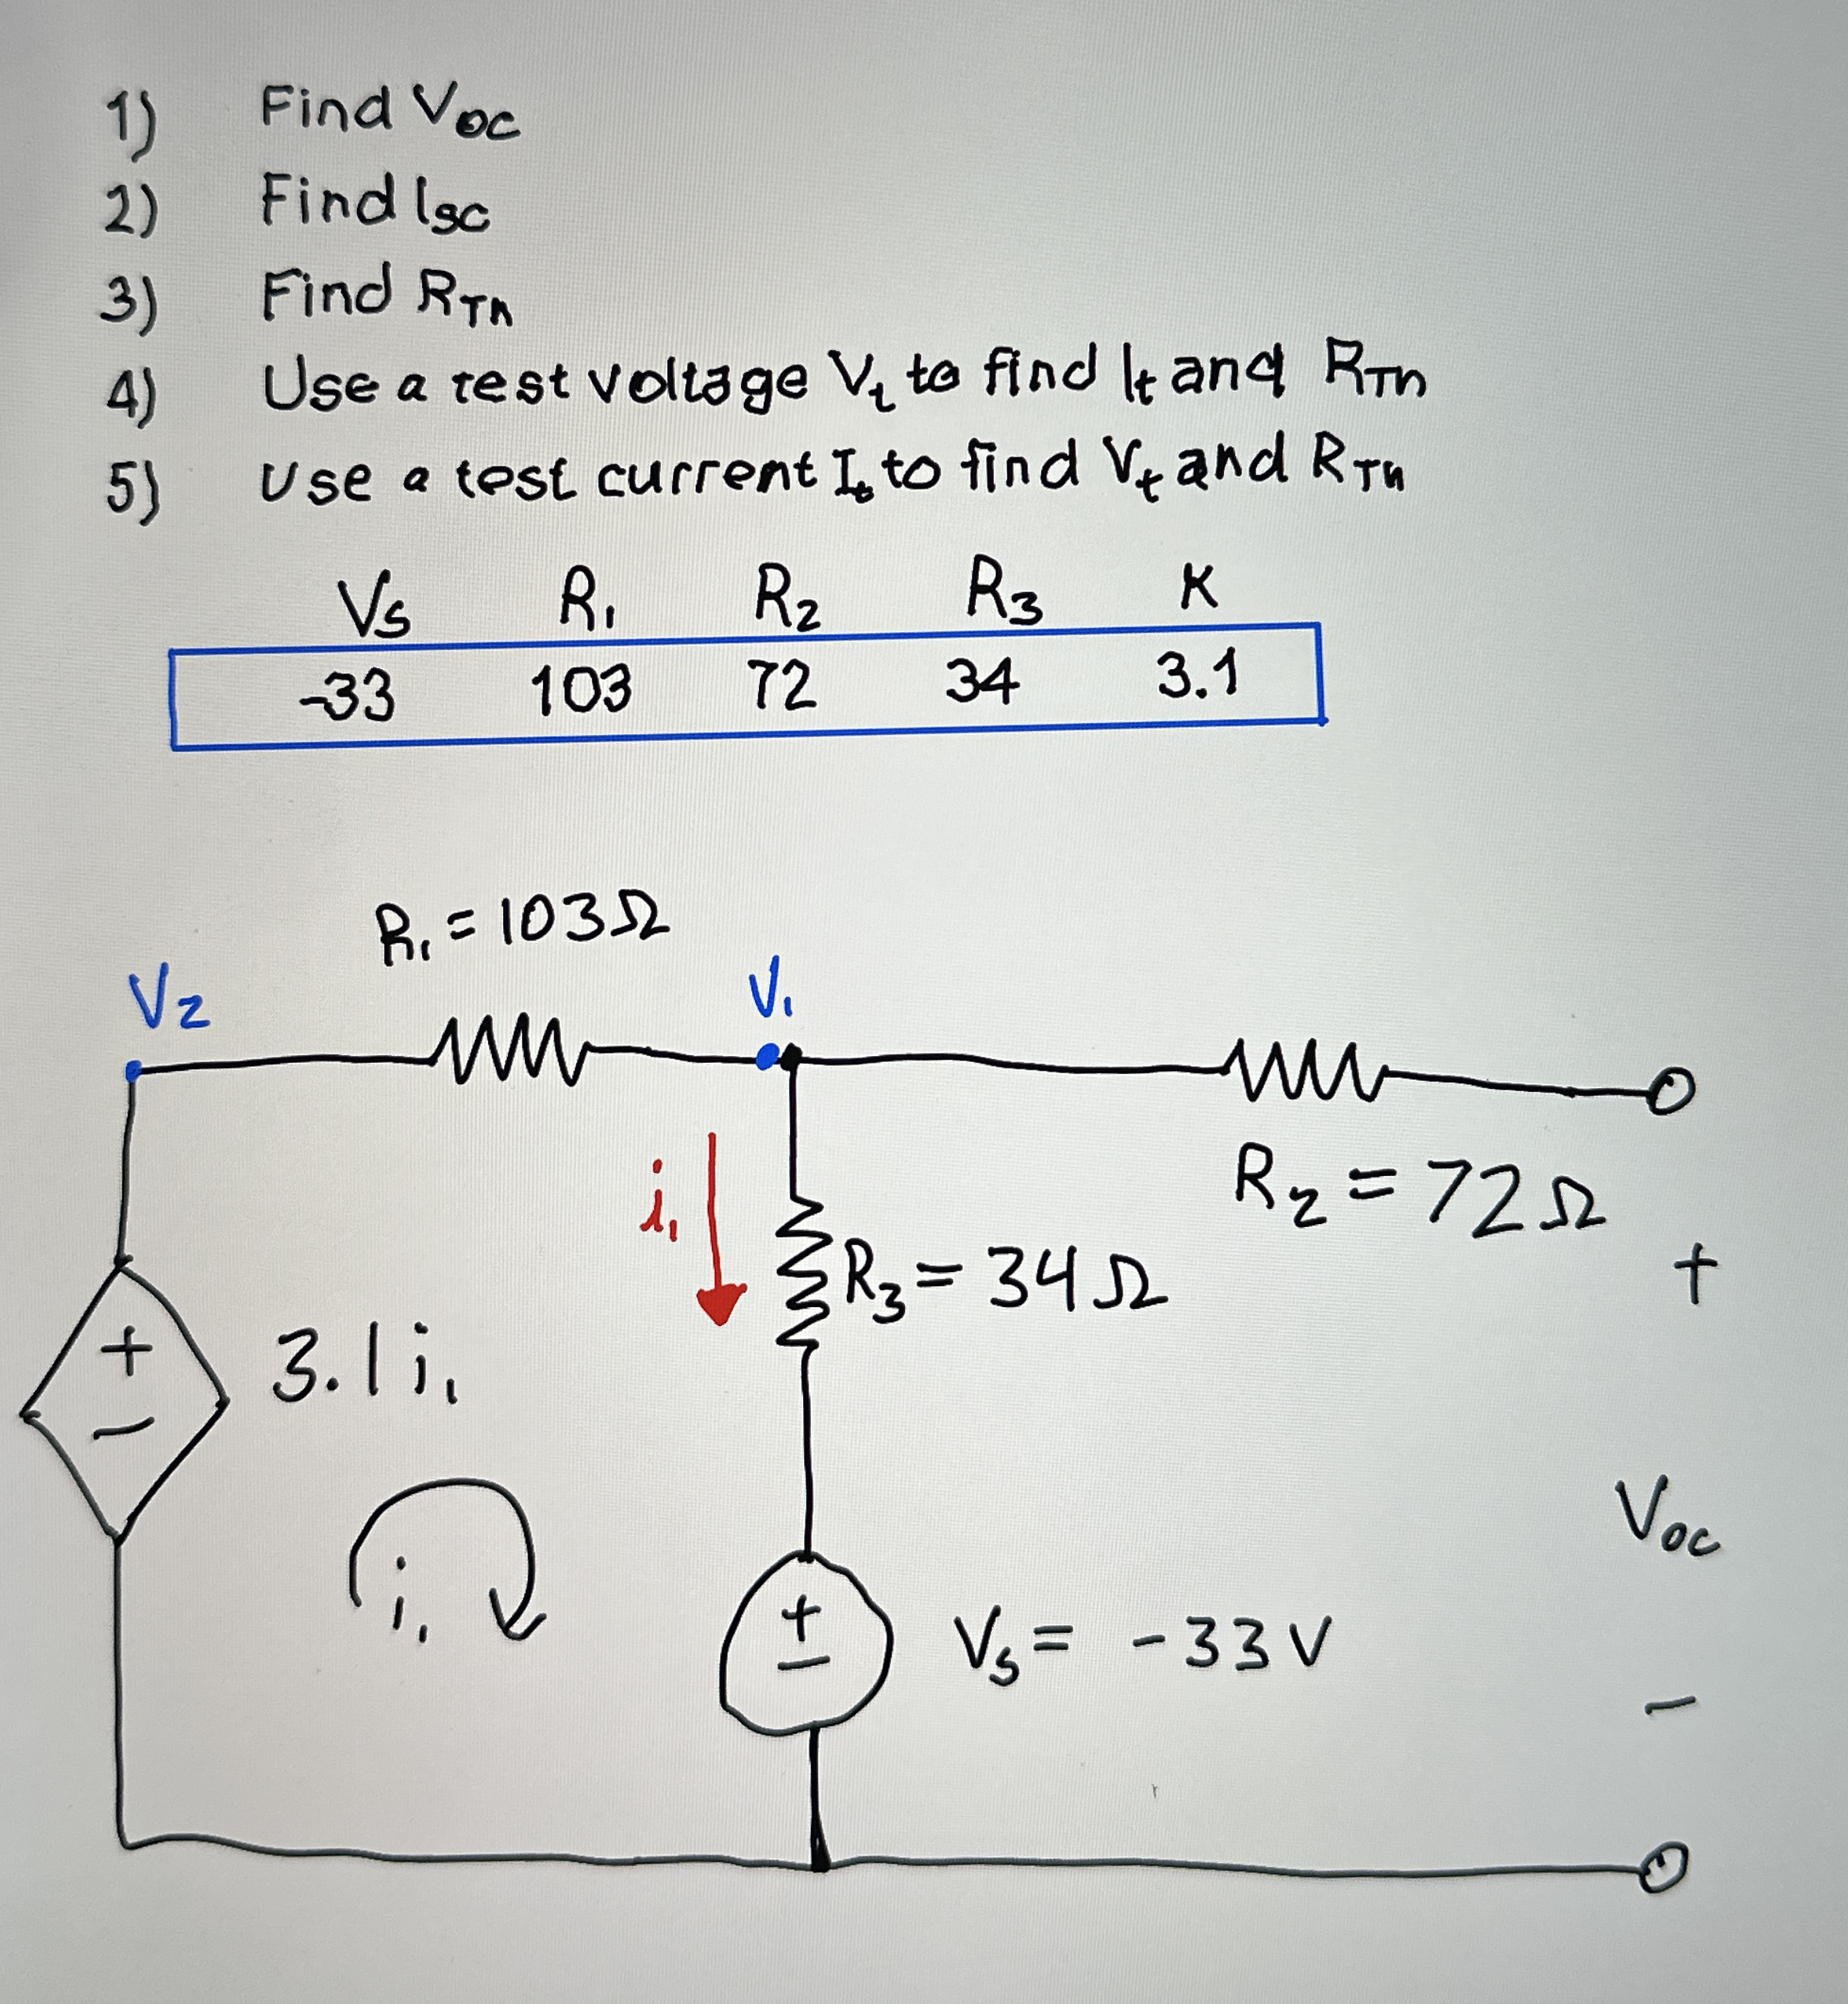 1) Find Voc
2) Find Isc
3) Find RTh
4) Use a test voltage Vt to find It and RTh
5) Use a test current It to find Vt and RTh
Vs R1 R2 R3 K
-33 103 72 34 3.1
R1 = 103Ω
V2
V1
i1
R2 = 72Ω
R3 = 34Ω
+
+
-
3.1 i1
Voc
i1
+
-
Vs = -33 V
-